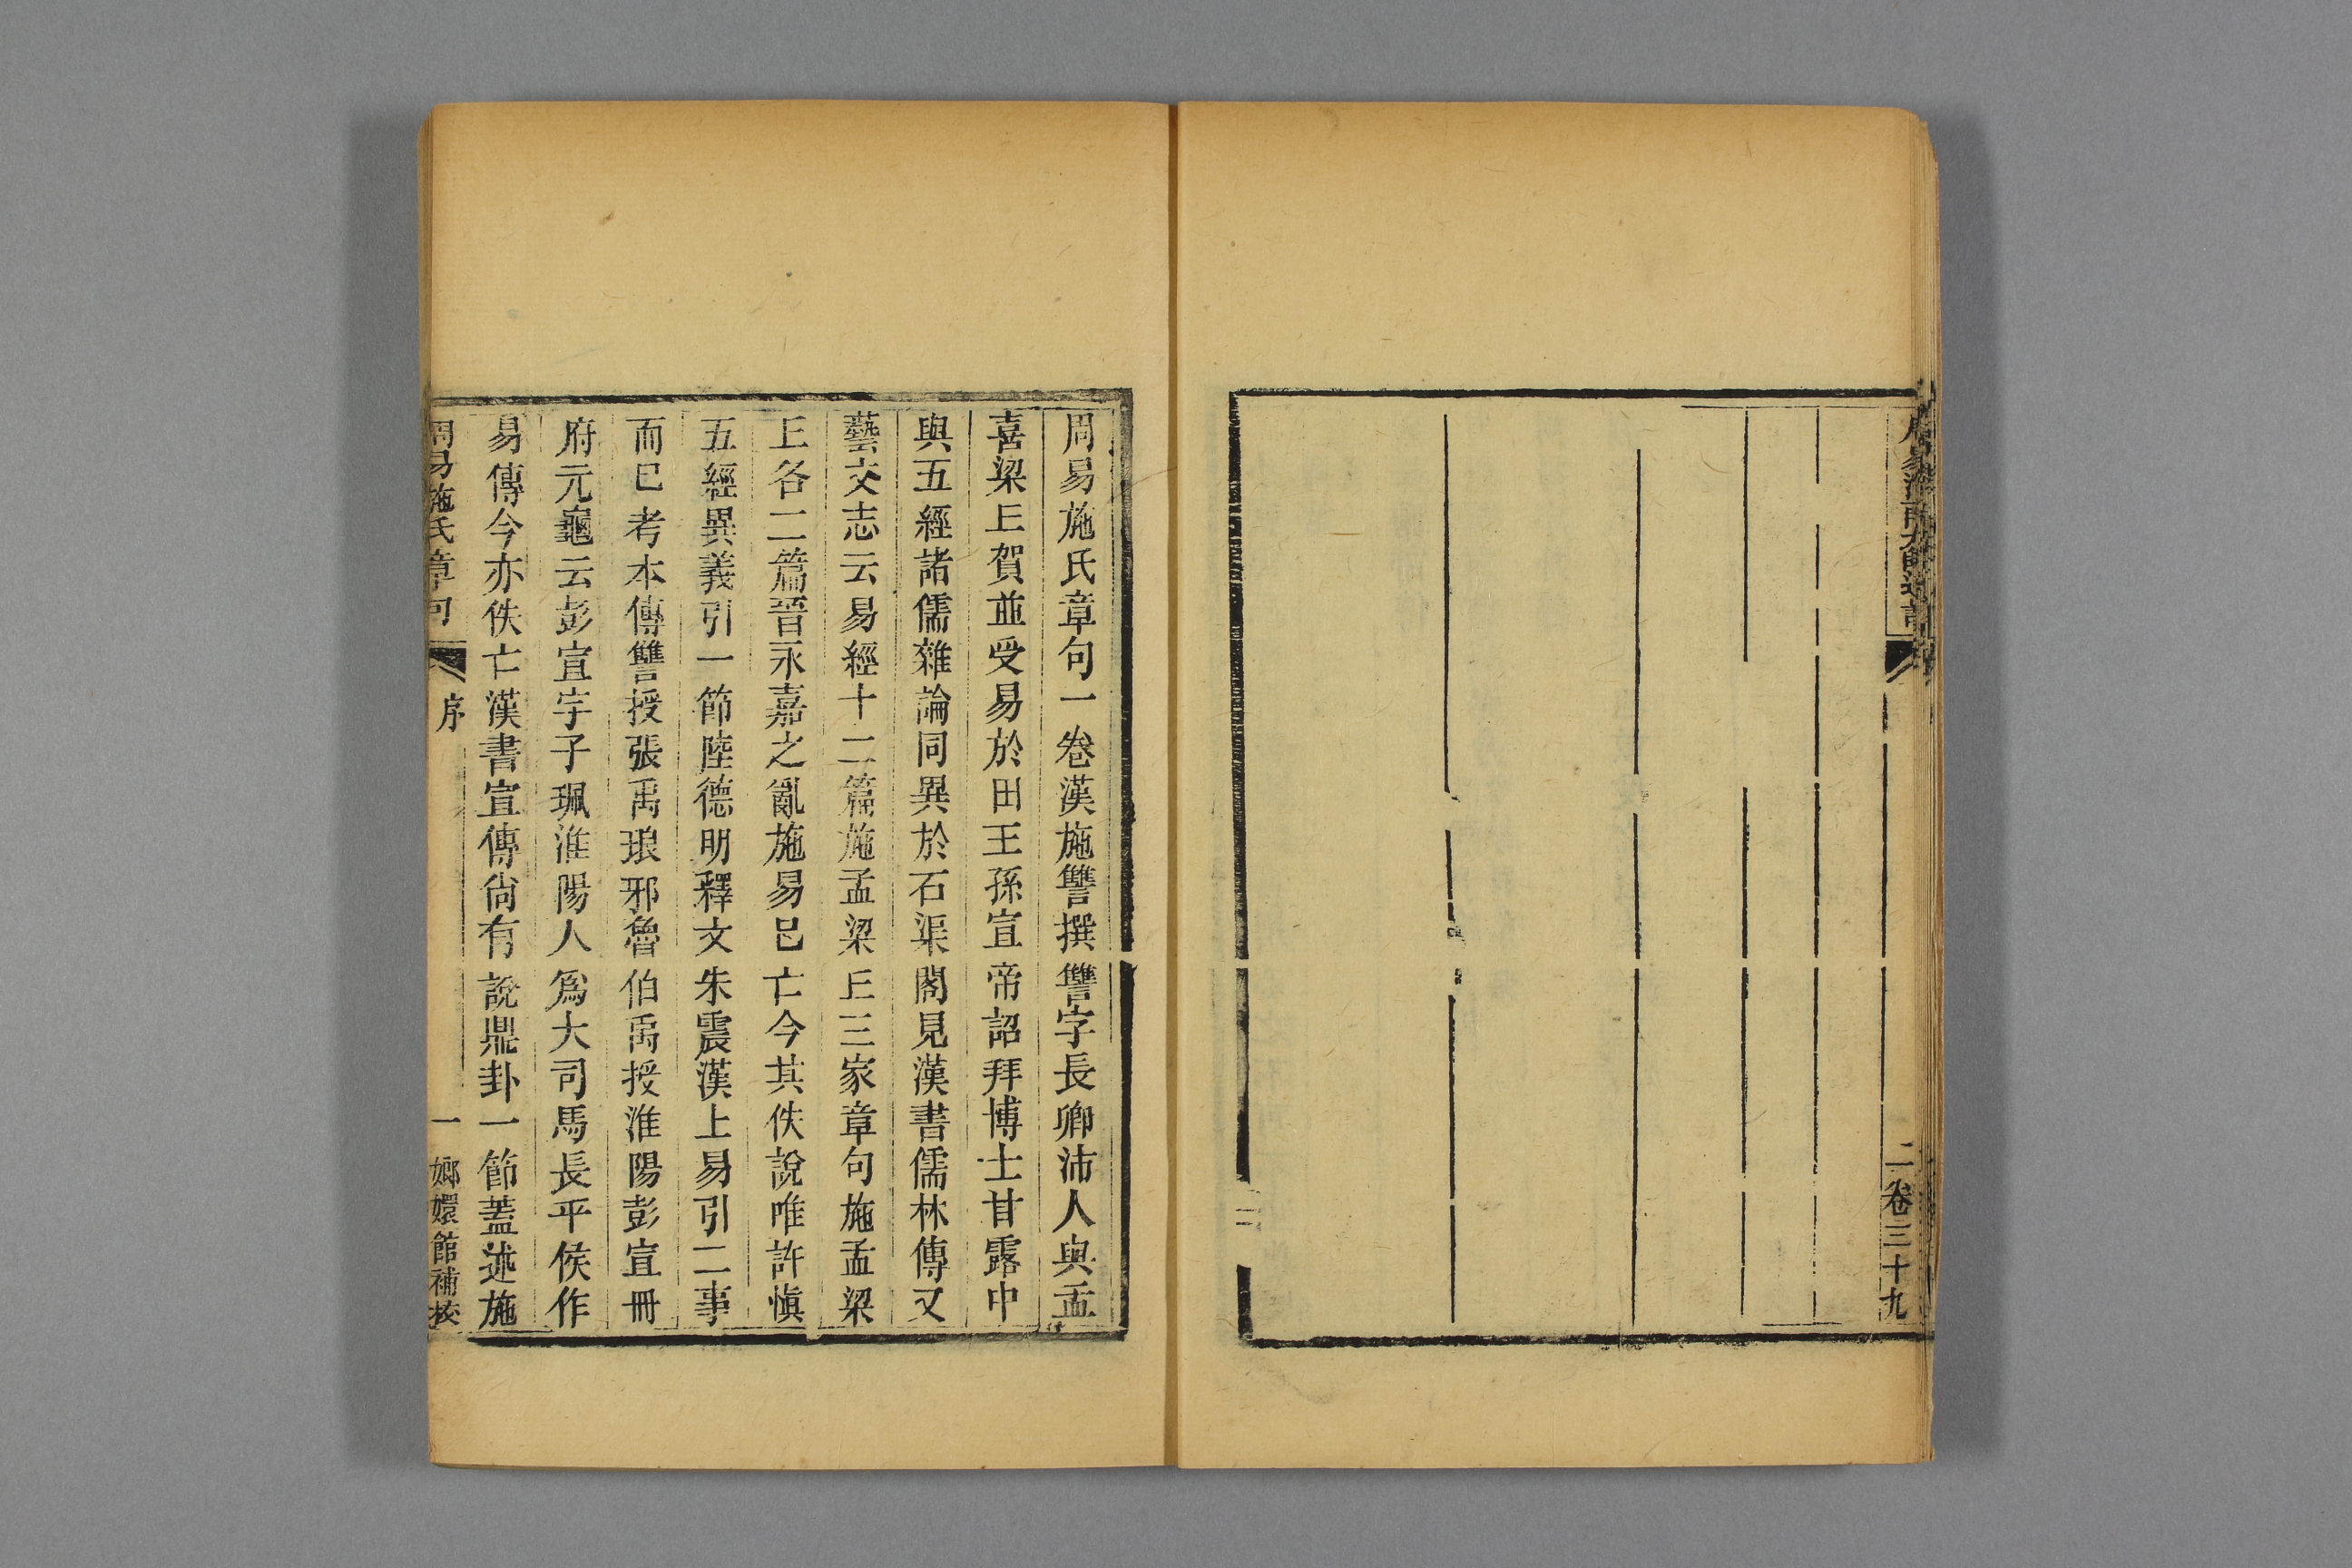 二
卷三十九
周易施氏章句一卷漢施讐撰讐字長卿沛人與孟
喜梁𠀉賀並受易於田王孫宣帝詔拜博士甘露中
與五經諸儒雜論同異於石渠閣見漢書儒林傳又
藝文志云易經十二篇施孟梁𠀉三家章句施孟梁
𠀉各二篇晉永嘉之亂施易巳亡今其佚說唯許愼
五經異義引一節陸德明釋文朱震漢上易引二事
而已考本傳讐授張禹琅邪魯伯禹授淮陽彭宣冊
府元龜云彭宣字子珮淮陽人爲大司馬長平侯作
易傳今亦佚亡漢書宣傳尙有說鼎卦一節蓋述施
周易施氏章句
序
一
嫏嬛館補校